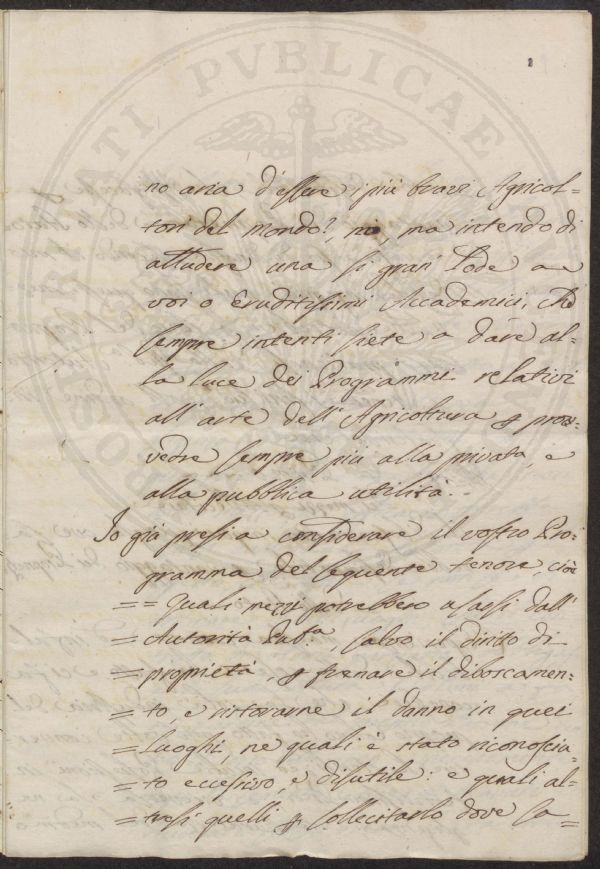 PVBLICAE
no aria d'essere i più bravi Agricol=
tori del mondo?, nò, ma intendo di
alludere una si gran Lode a
voi o Eruditissimi Accademici, che
sempre intenti siete a dare al=
la luce dei Programmi relativi
all'arte dell'Agricoltura p prov=
vedre sempre più alla privata, e
alla pubblica utilità.
Io già presi a considerare il vostro Pro:
gramma del seguente tenore, cioè
== Quali mezzi potrebbero usarsi dall'
= Autorità Pub.ca, salvo il diritto di
= proprietà, p frenare il diboscamen=
= to, e ristorarne il danno in quei
= luoghi, ne quali è stato riconosciu=
= to eccessivo, e disutile: e quali al=
= tresi quelli p sollecitarlo dove sa=